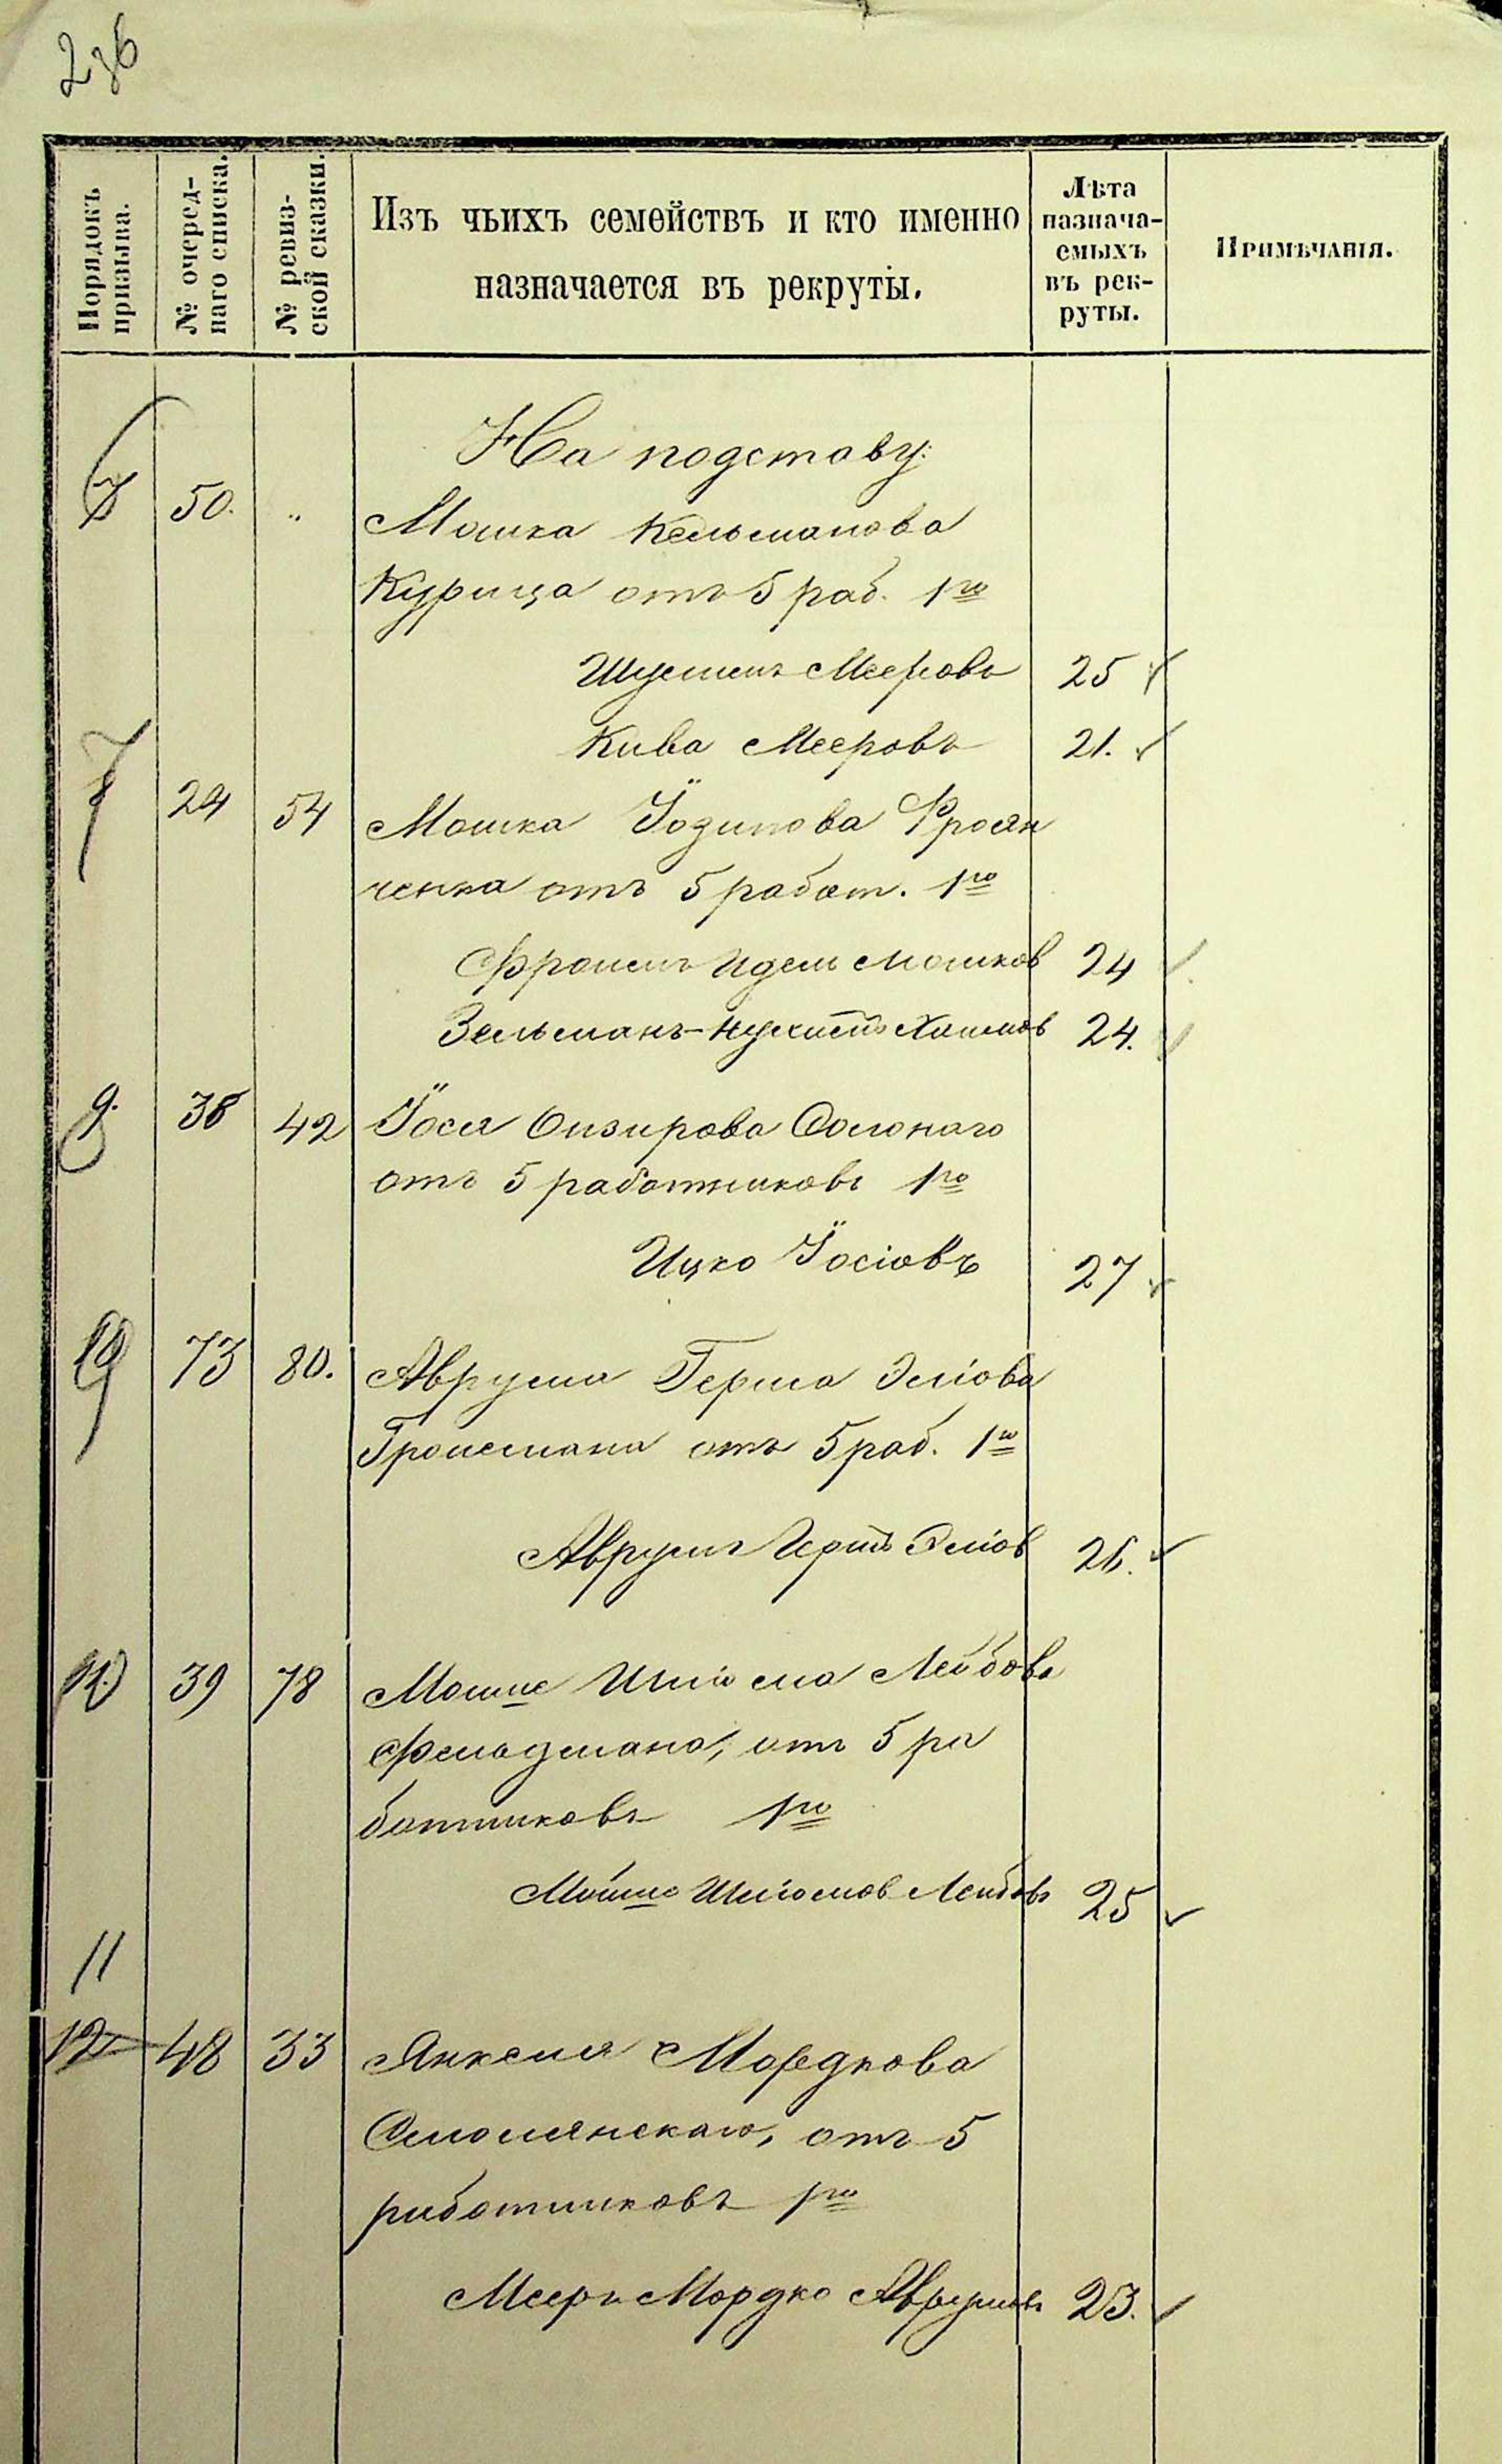 236
Порядокъ призыва.
№ очеред-
наго списка.
№ ревиз-
ской сказки.
Изъ чьихъ семействъ и кто именно
назначается въ рекруты.
Лѣта
назнача-
емыхъ
въ рек-
руты.
Примѣчанія.
На подставу:
7 50. " Мошка Кельманова
Курица отъ 5 раб. 1го
Мееровъ 25
Кива Мееровъ 21.
7 24 54 Мошка Іозипова
ченка отъ 5 работ. 1го
Фроимъ Идель Мошков 24
Зельманъ- Хаимов 24.
9. 38 42 Іося Сологаго
отъ 5 работниковъ 1го
Ицко Іосіовъ 27
9 73 80. Аврума Герша Эліова
Гройсмана отъ 5 раб. 1го
Аврумъ Гершъ Эліов 26.
39 78 Мошке Шліома Лейбова
Фельдмана, отъ 5 ра
ботниковъ 1го
Мошко Шліомов Лейбовъ 25
11
12 48 33 Янкеля Мордкова
Смолянскаго, отъ 5
работниковъ 1го
Мееръ Мордко Аврумовъ 23.